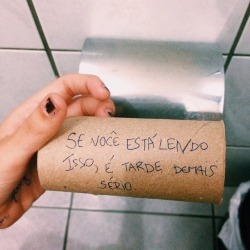 SE VOCÊ ESTÁ LENDO
ISSO, É TARDE DEMAIS
SÉRIO.